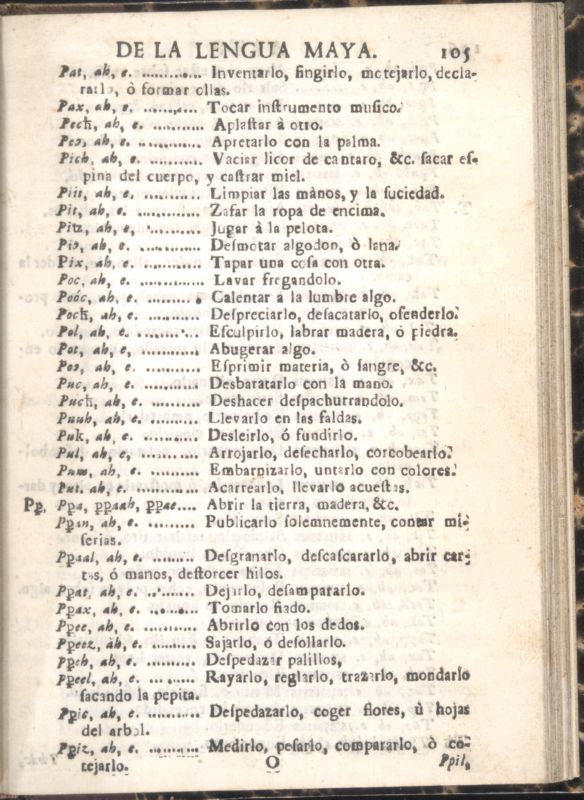 DE LA LENGUA MAYA. 105
Pat, ah, e. ............ Inventarlo, fingirlo, motejarlo, decla-
rarlo, ò formar ollas.
Pax, ah, e. .......... Tocar instrumento musico.
Pecħ, ah, e. ........... Aplastar à otro.
Peɔ, ah, e. ............ Apretarlo con la palma.
Pich, ah, e. .......... Vaciar licor de cantaro, &c. sacar es-
pina del cuerpo, y castrar miel.
Piit, ah, e. ........... Limpiar las mànos, y la suciedad.
Pit, ah, e. ............ Zafar la ropa de encima.
Pitz, ah, e, .......... Jugar à la pelota.
Piɔ, ah, e. ............ Desmotar algodon, ò lana.
Pix, ah, e. ............ Tapar una cosa con otra.
Poc, ah, e. ............ Lavar fregandolo.
Poóc, ah, e. ........ Calentar a la lumbre algo.
Pocħ, ah, e. .......... Despreciarlo, desacatarlo, ofenderlo.
Pol, ah, e. .......... Esculpirlo, labrar madera, ó piedra.
Pot, ah, e, .......... Abugerar algo.
Poɔ, ah, e. .......... Esprimir materia, ò sangre, &c.
Puc, ah, e. .......... Desbaratarlo con la mano.
Pucħ, ah, e. .......... Deshacer despachurrandolo.
Puuh, ah, e. .......... Llevarlo en las faldas.
Puk, ah, e. .......... Desleirlo, ó fundirlo.
Pul, ah, e, .......... Arrojarlo, desecharlo, corcobearlo.
Pum, ah, e. .......... Embarnizarlo, untarlo con colores.
Put, ah, e. .......... Acarrearlo, llevarlo acuestas.
Pp. Ppa, ppaah, ppae.... Abrir la tierra, madera, &c.
Ppan, ah, e. ......... Publicarlo solemnemente, contar mi-
serias.
Ppaal, ah, e. ........ Desgranarlo, descascararlo, abrir car-
tas, ó manos, destorcer hilos.
Ppat, ah, e. ......... Dejarlo, desampararlo.
Ppax, ah, e. ......... Tomarlo fiado.
Ppee, ah, e. .......... Abrirlo con los dedos.
Ppeez, ah, e. ........ Sajarlo, ó desollarlo.
Ppeh, ah, e. .......... Despedazar palillos,
Ppeel, ah, e. ......... Rayarlo, reglarlo, trazarlo, mondarlo
sacando la pepita.
Ppic, ah, e. .......... Despedazarlo, coger flores, ù hojas
del arbol.
Ppiz, ah, e. .......... Medirlo, pesarlo, compararlo, ò co-
tejarlo.
O Ppil,